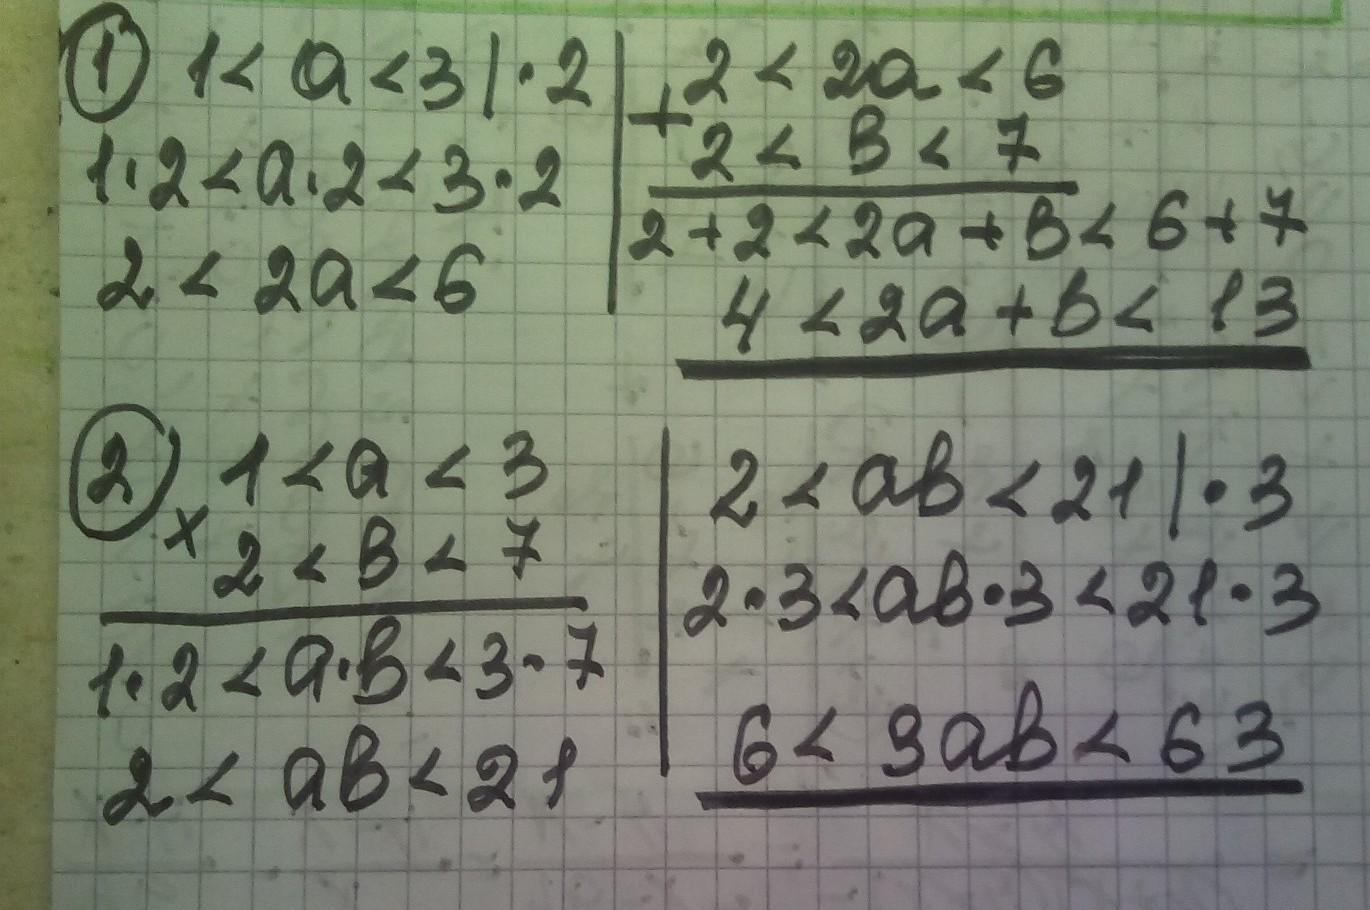 ① 1 < a < 3 | · 2
1·2 < a·2 < 3·2
2 < 2a < 6
2 < 2a < 6
+ 2 < в < 7
2+2 < 2a + в < 6+7
4 < 2a + b < 13
② 1 < a < 3
× 2 < в < 7
1·2 < a·в < 3·7
2 < aв < 21
2 < ab < 21 | · 3
2·3 < ab·3 < 21·3
6 < 3ab < 63